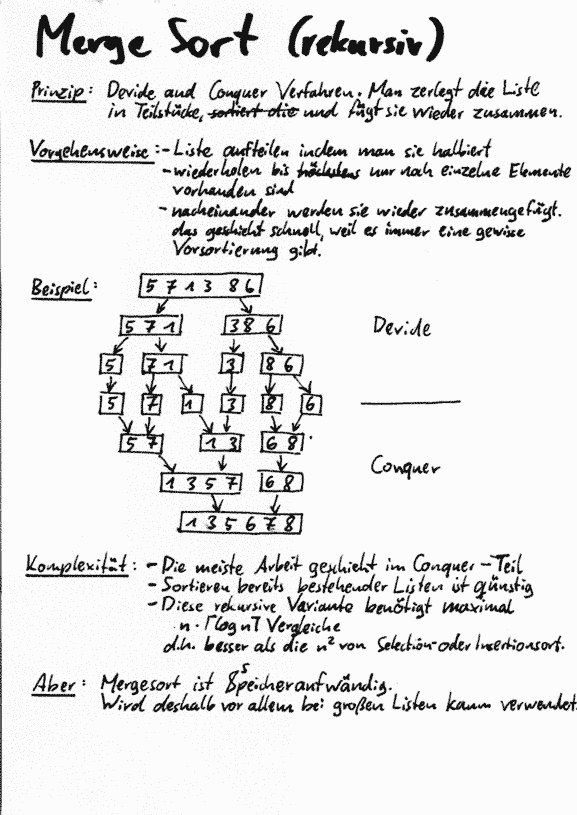 Merge Sort (rekursiv)
Prinzip: Devide and Conquer Verfahren. Man zerlegt die Liste
in Teilstücke, sortiert die und fügt sie wieder zusammen.
Vorgehensweise: - Liste aufteilen indem man sie halbiert
- wiederholen bis höchstens nur noch einzelne Elemente
vorhanden sind
- nacheinander werden sie wieder zusammengefügt.
das geschieht schnell, weil es immer eine gewisse
Vorsortierung gibt.
Beispiel: 5 7 1 3 8 6
5 7 1 3 8 6 Devide
5 7 1 3 8 6
5 7 1 3 8 6
5 7 1 3 6 8
Conquer
1 3 5 7 6 8
1 3 5 6 7 8
Komplexität: - Die meiste Arbeit geschieht im Conquer-Teil
- Sortieren bereits bestehender Listen ist günstig
- Diese rekursive Variante benötigt maximal
n · ⌈log n⌉ Vergleiche
d.h. besser als die n² von Selection- oder Insertionsort.
Aber: Mergesort ist Speicheraufwändig.
Wird deshalb vor allem bei großen Listen kaum verwendet.